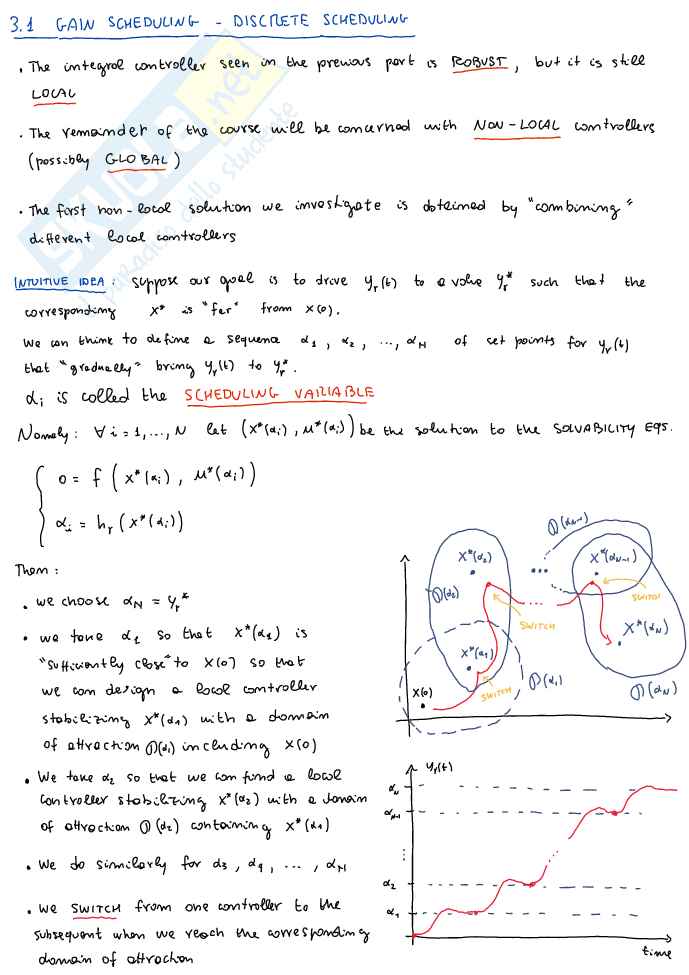 3.1 GAIN SCHEDULING - DISCRETE SCHEDULING
• The integral controller seen in the previous part is ROBUST, but it is still
LOCAL
• The remainder of the course will be concerned with NON-LOCAL controllers
(possibly GLOBAL)
• The first non-local solution we investigate is obtained by "combining"
different local controllers
INTUITIVE IDEA: suppose our goal is to drive yr(t) to a value yr* such that the
corresponding x* is "far" from x(0).
We can think to define a sequence α1, α2, ..., αN of set points for yr(t)
that "gradually" bring yr(t) to yr*.
αi is called the SCHEDULING VARIABLE
Namely: ∀i=1,...,N let (x*(αi), u*(αi)) be the solution to the SOLVABILITY EQS.
0 = f(x*(αi), u*(αi))
αi = hr(x*(αi))
Then:
• we choose αN = yr*
• we take α1 so that x*(α1) is
"sufficiently close" to x(0) so that
we can design a local controller
stabilizing x*(α1) with a domain
of attraction D(α1) including x(0)
• We take α2 so that we can find a local
controller stabilizing x*(α2) with a domain
of attraction D(α2) containing x*(α1)
• We do similarly for α3, α4, ..., αN
• we SWITCH from one controller to the
subsequent when we reach the corresponding
domain of attraction
D(αN-1)
x*(α2)
...
x*(αN-1)
D(α2)
SWITCH
...
SWITCH
x*(αN)
x*(α1)
x(0)
SWITCH
D(α1)
D(αN)
yr(t)
αN
αN-1
α2
α1
time
skuola.net
il paradiso dello studente